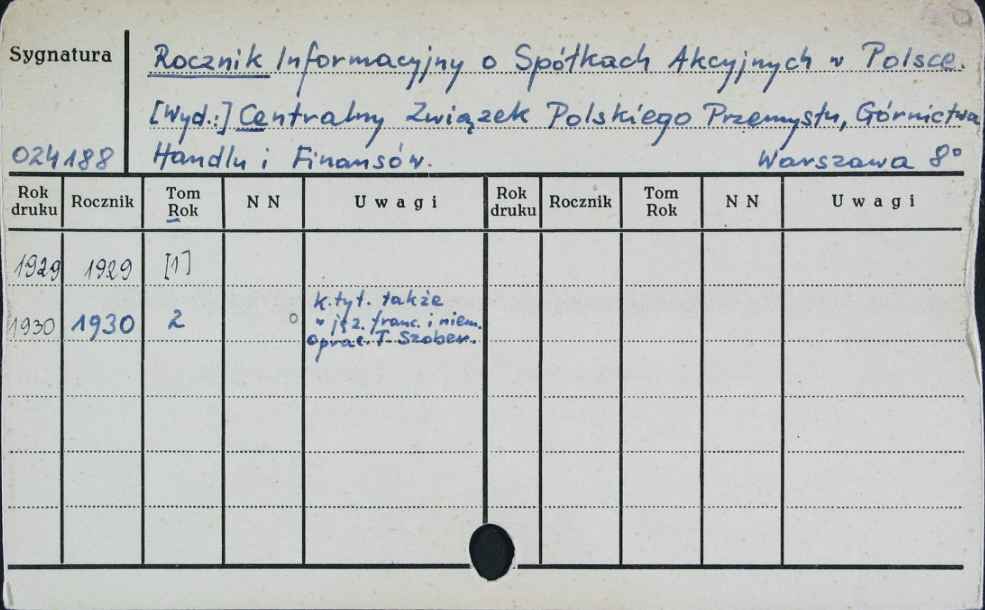 Sygnatura
Rocznik Informacyjny o Spółkach Akcyjnych w Polsce.
[Wyd.:] Centralny Związek Polskiego Przemysłu, Górnictwa
024188 Handlu i Finansów. Warszawa 8°
Rok druku Rocznik Tom Rok NN Uwagi Rok druku Rocznik Tom Rok NN Uwagi
1929 1929 [1]
1930 1930 2 o K. tyt. także
w jęz. franc. i niem.
oprac. T. Szober.